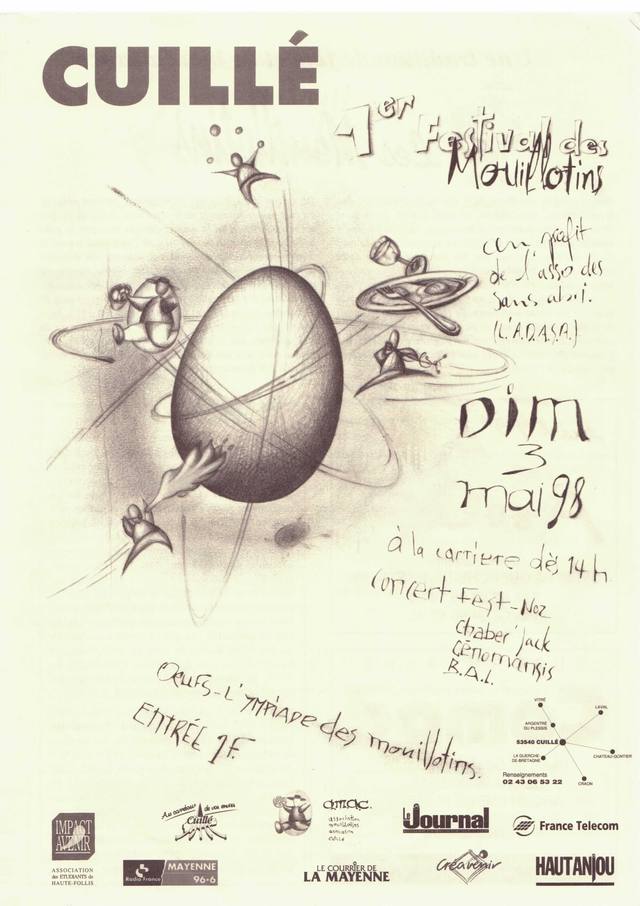 CUILLÉ
1er Festival des
Mouillotins
au profit
de l'asso des
sans abri.
(L'A.D.A.S.A.)
Dim
3
mai 98
à la carriere dès 14h
concert Fest-Noz
chaber'Jack
Cénomansis
B.A.L.
OEUFS-L'YMPIADE des mouillotins.
ENTRÉE 1F.
VITRÉ
LAVAL
ARGENTRÉ
DU PLESSIS
53540 CUILLÉ
LA GUERCHE
DE-BRETAGNE
CHATEAU-GONTIER
CRAON
Renseignements
02 43 06 53 22
IMPACT
AVENIR
ASSOCIATION
des ETUDIANTS de
HAUTE-FOLLIS
Au carrefour de vos envies
Cuillé
association
mouillotins
animation
cuillé
Le Journal
France Telecom
Radio France
MAYENNE
96•6
LE COURRIER DE
LA MAYENNE
Créavenir
HAUT ANJOU